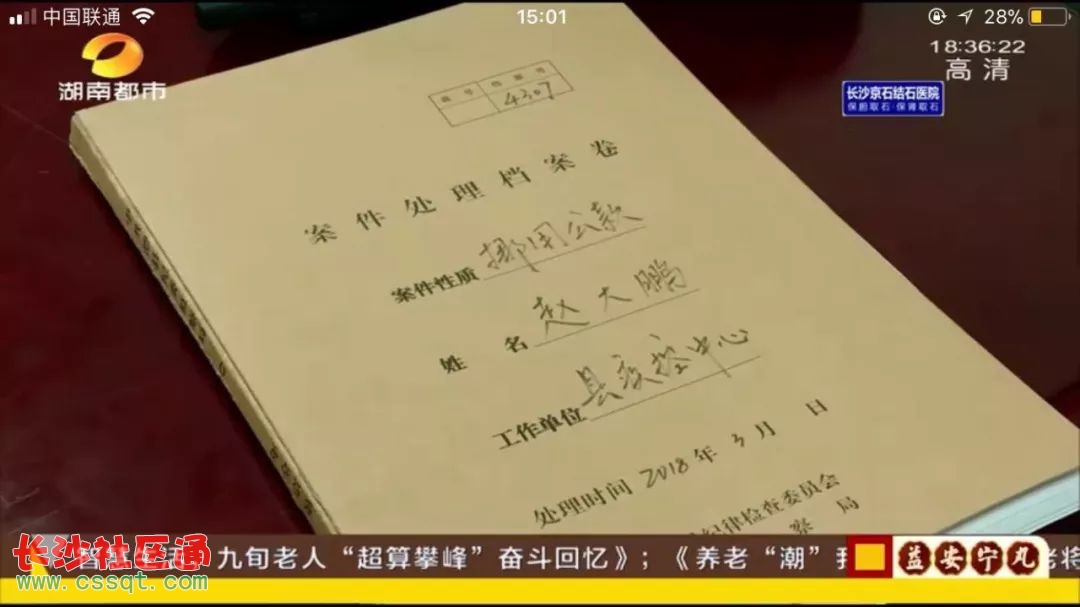 中国联通
15:01
28%
湖南都市
18:36:22
高清
长沙京石结石医院
保胆取石·保肾取石
4307
案件处理档案卷
案件性质 挪用公款
姓名 赵大鹏
工作单位 县疾控中心
处理时间 2018年3月 日
纪律检查委员会
察局
九旬老人“超算攀峰”奋斗回忆》；《养老“潮”
益安宁丸
老将
长沙社区通
www.cssqt.com